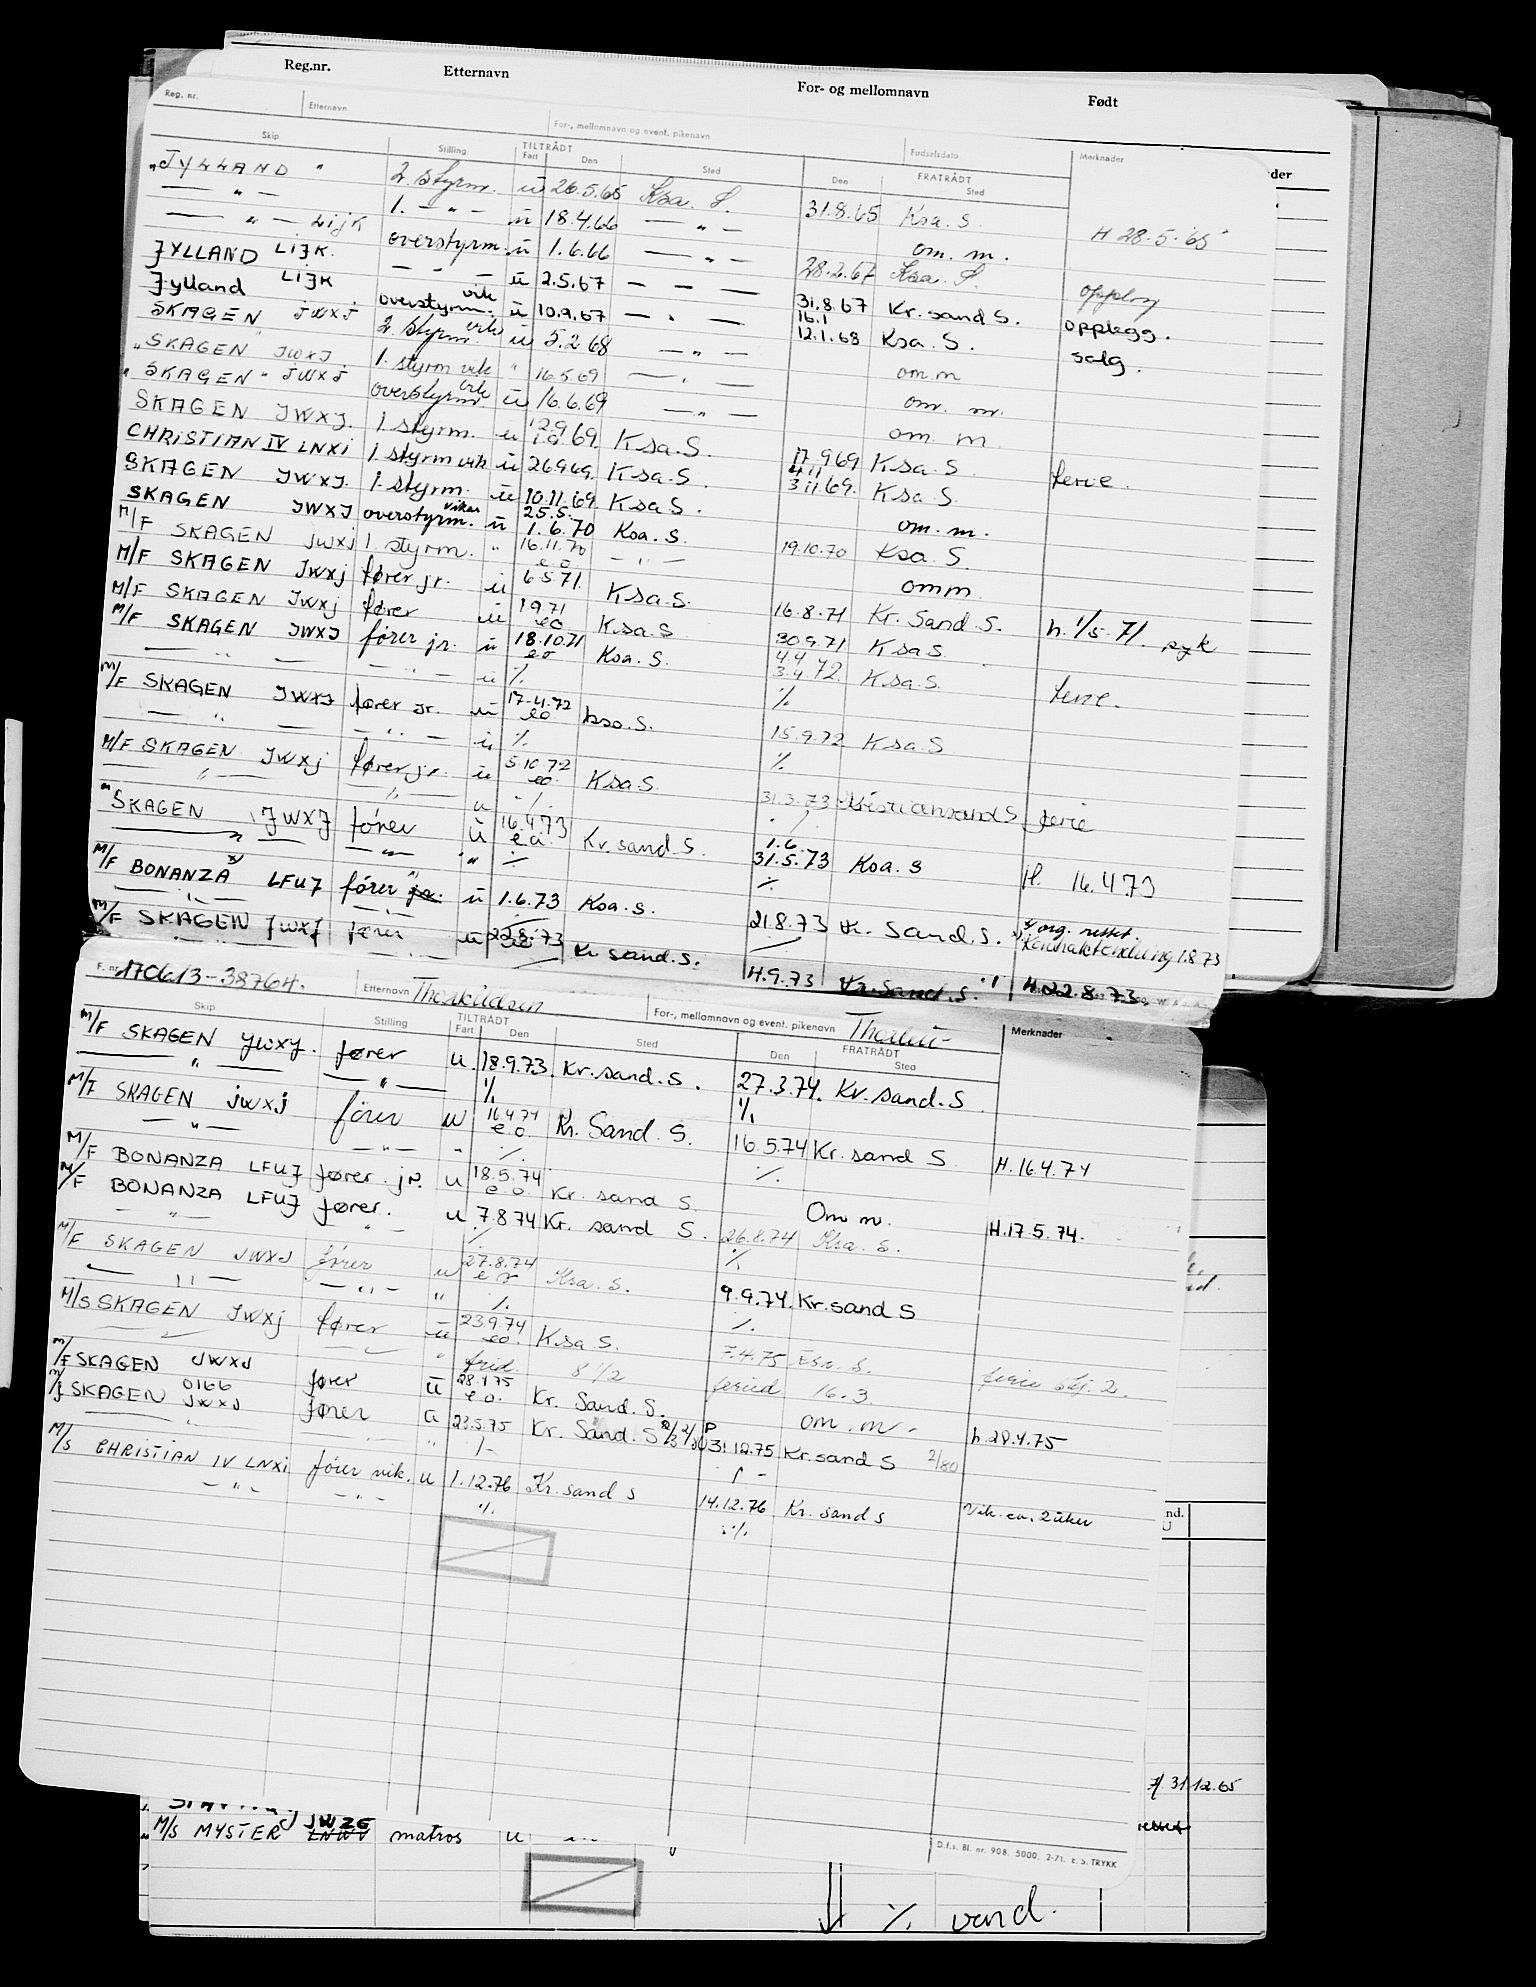 Reg.nr. Etternavn For- og mellomnavn Født
Reg. nr. Etternavn For-, mellomnavn og event. pikenavn Fødselsdato Merknader
Skip Stilling TILTRÅDT Fart Den Sted FRATRÅDT Den Sted
"JYLLAND" 2. styrm. u 26.5.65 Ksa. S. 31.8.65 Ksa. S. H 28.5.65
— " — 1. — " — u 18.4.66 — " — om. m.
— " — LIJK overstyrm. u 1.6.66 — " — 28.2.67 Ksa. S. opplag
JYLLAND LIJK. — " — u 2.5.67 — — — 31.8.67 Kr. sand S. opplegg.
Jylland LIJK overstyrm. vik u 10.9.67 — " — 16.1 12.1.68 Ksa. S. salg.
SKAGEN JWXJ 2. styrm. vik u 5.2.68 — " — om m
"SKAGEN JWXJ 1. styrm vik " 16.5.69 — " — om. m.
"SKAGEN" JWXJ overstyrm vik u 16.6.69 — " — om m.
SKAGEN JWXJ. 1 styrm. u 12.9 69. Ksa. S. 17.9.69 Ksa. S ferie.
CHRISTIAN IV LNXI 1 styrm vik u 26969. Ksa. S. 4.11 3.11.69. Ksa. S.
SKAGEN JWXJ. 1. styrm. u 10.11.69 Ksa S. om. m.
SKAGEN JWXJ overstyrm. vikar u 25.5. 1.6.70 Ksa. S 19.10.70 Ksa. S.
M/F SKAGEN JWXJ 1 styrm. " 16.11.70 eo — " — omm.
M/F SKAGEN JWXJ fører jr. u 6571 Ksa. S. 16.8.71 Kr. Sand. S. h. 1/5. 71. syk
M/F SKAGEN JWXJ fører u 1971 eo Ksa. S 30.9.71 Ksa S.
M/F SKAGEN JWXJ fører jr. u 18.10.71 eo Ksa. S. 4.4 3.4.72. Ksa. S. ferie.
— " — — " — u ./. ./.
M/F SKAGEN JWXJ fører jr. u 17.4.72 eo ksa. S. 15.9.72 Ksa. S
— " — — " — u ./. ./.
M/F SKAGEN JWXJ fører jr. u 5.10.72 eo. Ksa. S. 31.3.73 Kristiansand S ferie
— " — — " — u ./. ./.
"SKAGEN JWXJ fører u 16.4.73 e.o. Kr. sand. S. 1.6. 31.5.73 Ksa. S H. 16.4.73
— " — — " — " ./. ./.
M/F BONANZA x) LFUJ fører jr. u 1.6.73 Ksa. S. 21.8.73 Kr. Sand. S. x) org. rettet.
— " — — " — Kontraktendring 1.8.73
M/F SKAGEN JWXJ fører u 22.8.73 Kr sand. S. 4.9.73 Kr. Sand. S. H. 22.8.73.
F. nr. 170613-38764. Etternavn Thorkildsen For-, mellomnavn og event. pikenavn Merknader
Skip Stilling TILTRÅDT Fart Den Sted FRATRÅDT Den Sted
M/F SKAGEN JWXJ. fører u. 18.9.73. Kr. sand. S. 27.3.74. Kr. sand. S.
— " — — " — ./. ./.
M/F SKAGEN JWXJ fører u 16.4.74 e.o. Kr. Sand. S. 16.5.74 Kr. sand S. H. 16.4.74
— " — — " — " ./. ./.
M/F BONANZA LFUJ fører. jr. u 18.5.74 e.o. Kr. sand S. Om m. H. 17.5.74.
M/F BONANZA LFUJ fører. u 7.8.74 Kr. sand S. 26.8.74 Ksa. S.
— " — — " — ./. ./.
M/F SKAGEN JWXJ fører u 27.8.74 eo Ksa. S. 9.9.74. Kr. sand S
— " — — " — " ./. ./.
M/S SKAGEN JWXJ fører u 23.9.74 eo. Ksa S. 7.4.75 Ksa. S. ferie
" frid. 8 1/2 feried 16.3
M/F SKAGEN JWXJ fører u 28.4.75 e.o. Kr. Sand. S. om. m. h. 28.4.75
M/f SKAGEN 0166 JWXJ fører a 23.5.75 Kr. Sand. S P 31.12.75 Kr. sand S 2/80
— " — — " — " ./. ./.
M/S CHRISTIAN IV LNXI fører vik. u 1.12.76 Kr. sand s 14.12.76 Kr. sand s Vik. ca. 2 uker
— " — — " — ./. ./.
nd.
7/ 31.12.65
rettet
M/S MYSTER JWZG LNWV matros u
D.f.s. Bl. nr. 908. 5000. 2-71. E. S. TRYKK
./. vend.